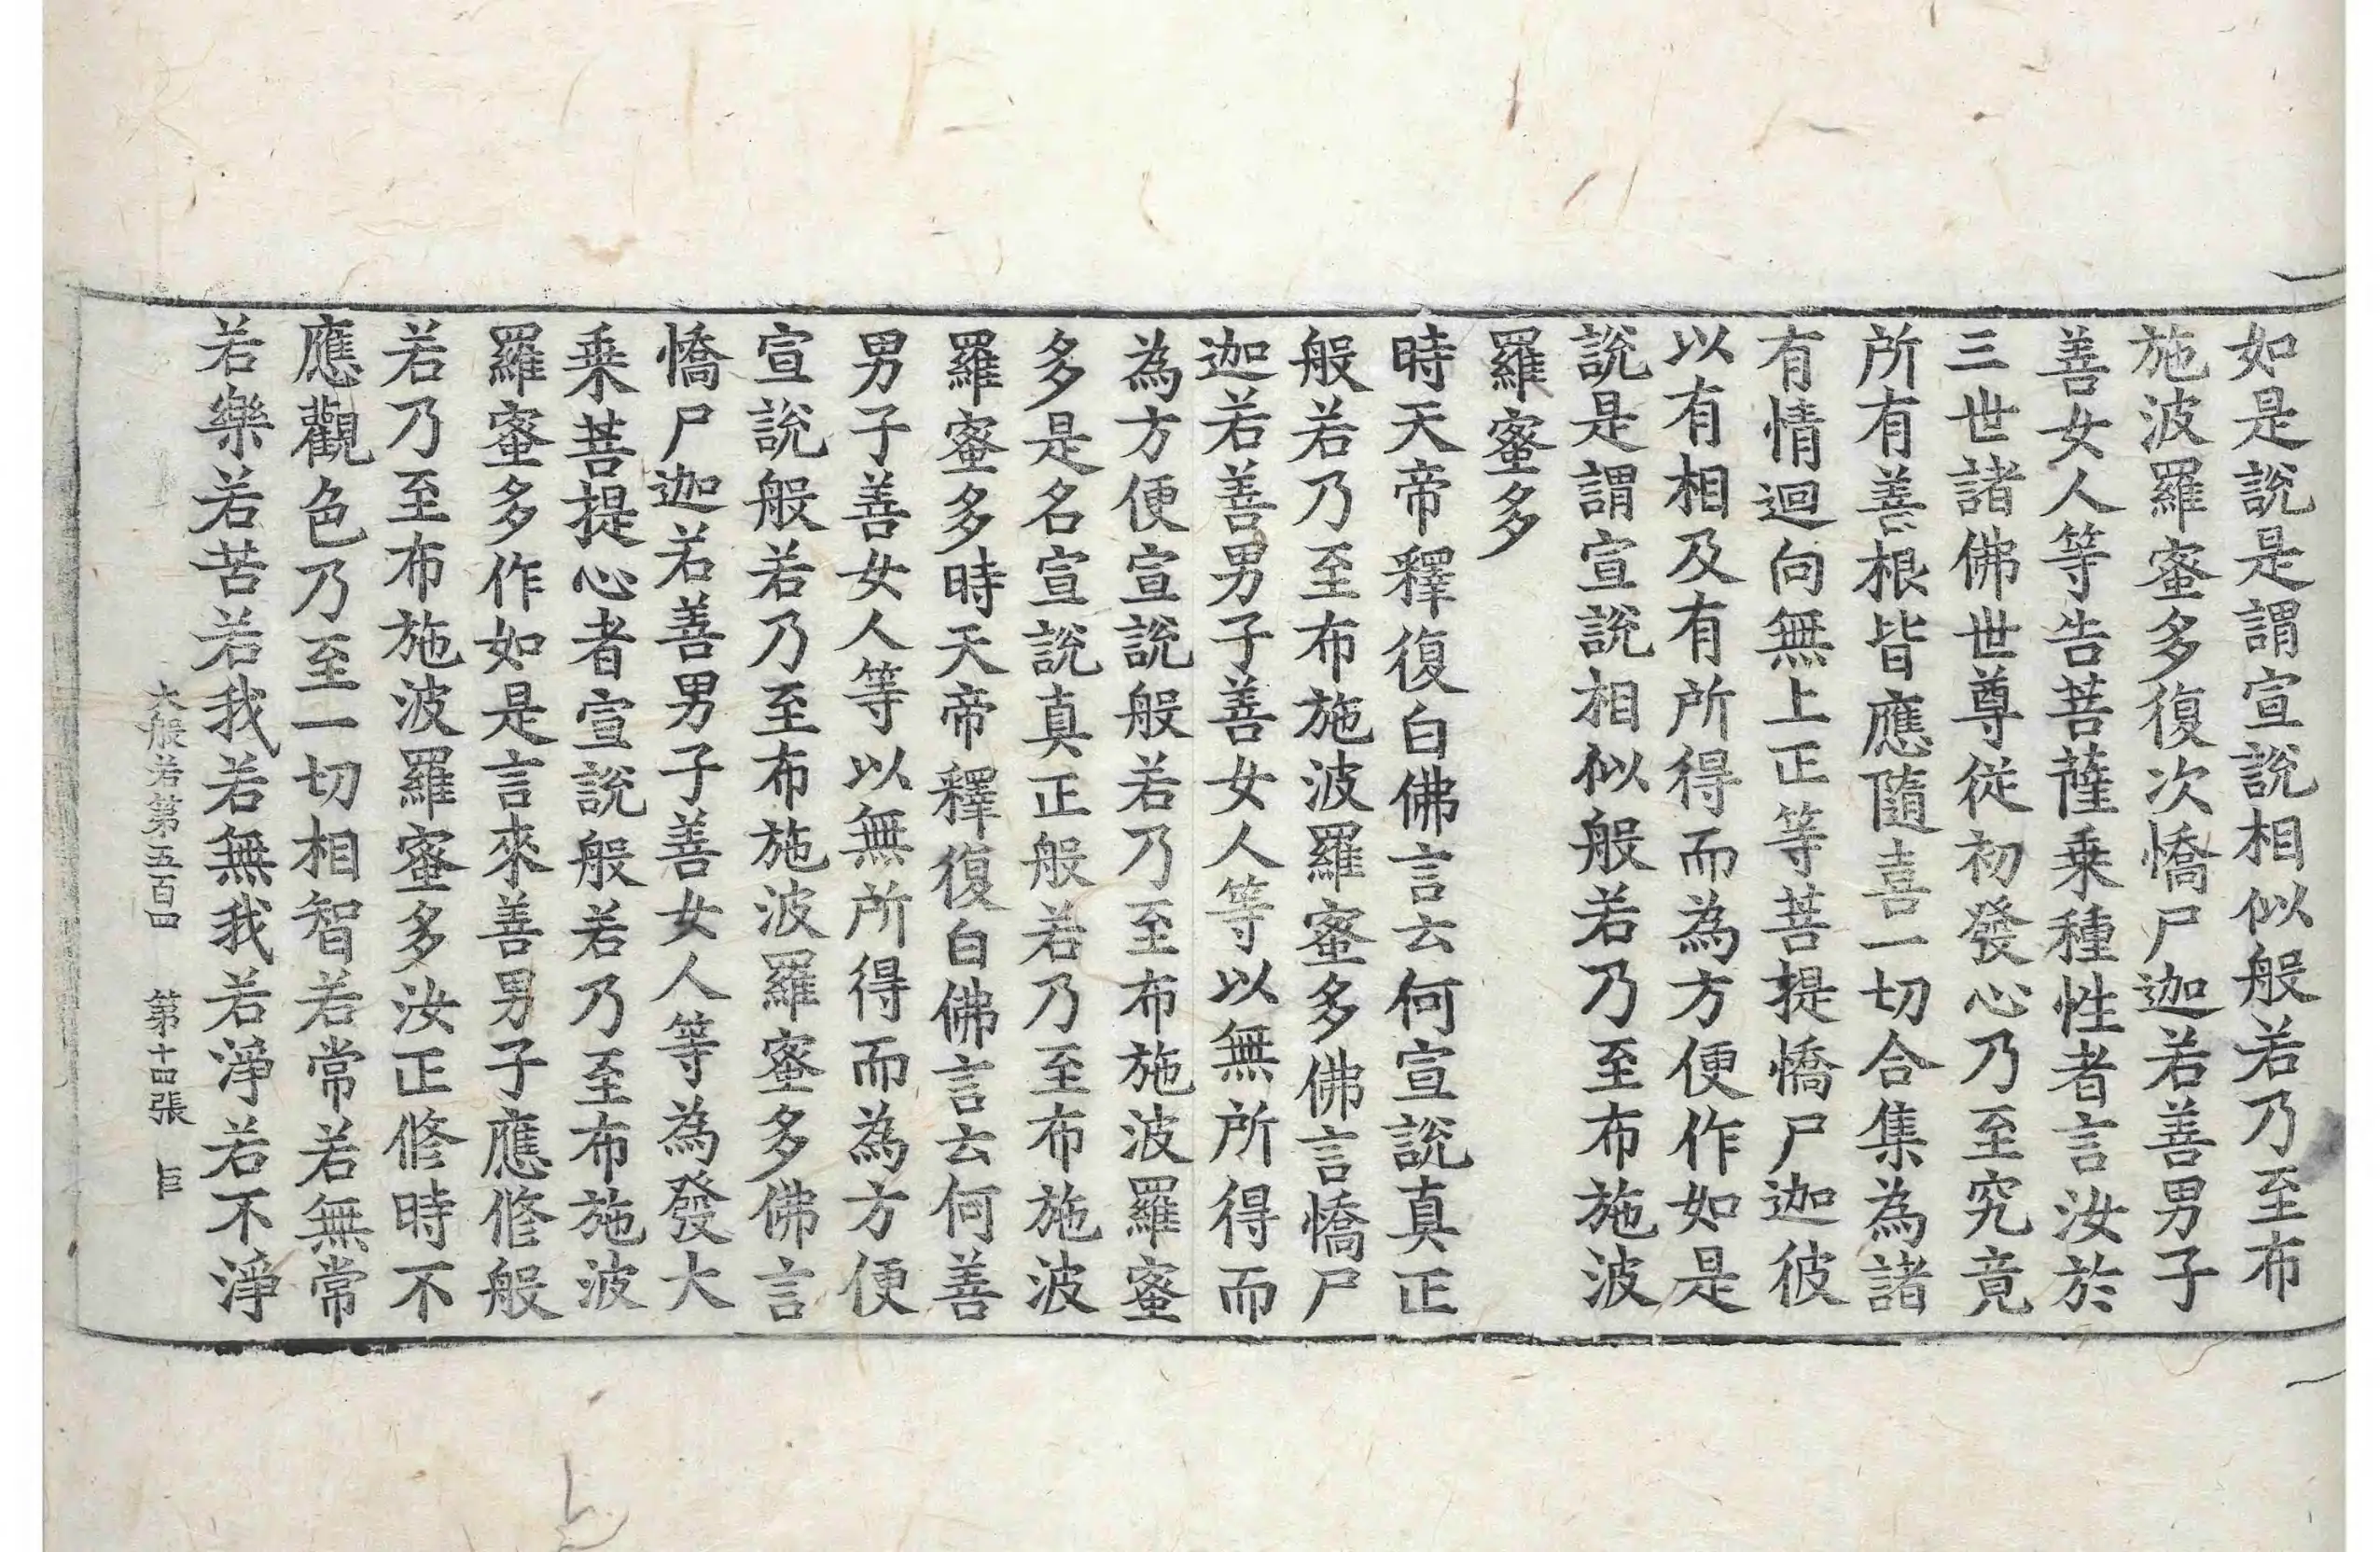 如是說是謂宣說相似般若乃至布
施波羅蜜多復次憍尸迦若善男子
善女人等告菩薩乘種性者言汝於
三世諸佛世尊從初發心乃至究竟
所有善根皆應隨喜一切合集為諸
有情迴向無上正等菩提憍尸迦彼
以有相及有所得而為方便作如是
說是謂宣說相似般若乃至布施波
羅蜜多
時天帝釋復白佛言云何宣說真正
般若乃至布施波羅蜜多佛言憍尸
迦若善男子善女人等以無所得而
為方便宣說般若乃至布施波羅蜜
多是名宣說真正般若乃至布施波
羅蜜多時天帝釋復白佛言云何善
男子善女人等以無所得而為方便
宣說般若乃至布施波羅蜜多佛言
憍尸迦若善男子善女人等為發大
乘菩提心者宣說般若乃至布施波
羅蜜多作如是言來善男子應修般
若乃至布施波羅蜜多汝正修時不
應觀色乃至一切相智若常若無常
若樂若苦若我若無我若淨若不淨
大般若第五百四 第十四張